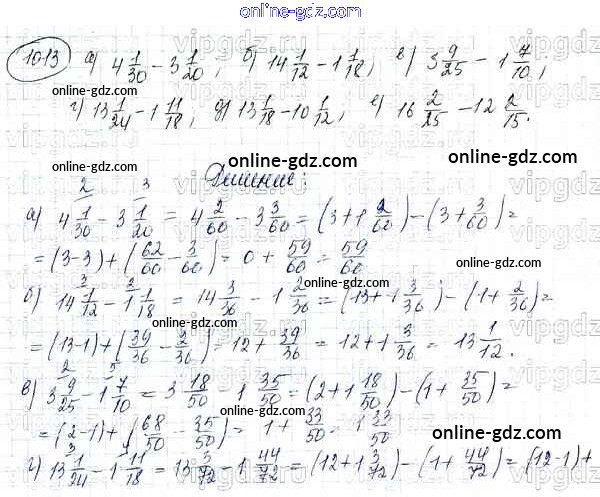 online-gdz.com
1013 а) 4 1/30 - 3 1/20; б) 14 1/12 - 1 1/18; в) 3 9/25 - 1 7/10;
г) 13 1/24 - 1 11/18; д) 13 1/18 - 10 1/12; е) 16 2/25 - 12 2/15.
online-gdz.com online-gdz.com
Решение:
а) 4 1/30 - 3 1/20 = 4 2/60 - 3 3/60 = (3 + 1 2/60) - (3 + 3/60) =
= (3-3) + (62/60 - 3/60) = 0 + 59/60 = 59/60
online-gdz.com
б) 14 1/12 - 1 1/18 = 14 3/36 - 1 2/36 = (13 + 1 3/36) - (1 + 2/36) =
= (13-1) + (39/36 - 2/36) = 12 + 39/36 = 12 + 1 3/36 = 13 1/12.
online-gdz.com
в) 3 9/25 - 1 7/10 = 3 18/50 - 1 35/50 = (2 + 1 18/50) - (1 + 35/50) =
= (2-1) + (68/50 - 35/50) = 1 + 33/50 = 1 33/50
online-gdz.com
г) 13 1/24 - 1 11/18 = 13 3/72 - 1 44/72 = (12 + 1 3/72) - (1 + 44/72) = (12-1) +
online-gdz.com